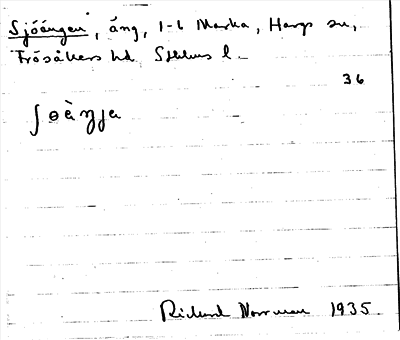 Sjöängen, äng, 1-6 Marka, Hargs sn,
Frösåkers hd Sthlms l.
36
ʃɵàŋja
Richard Norrman 1935.